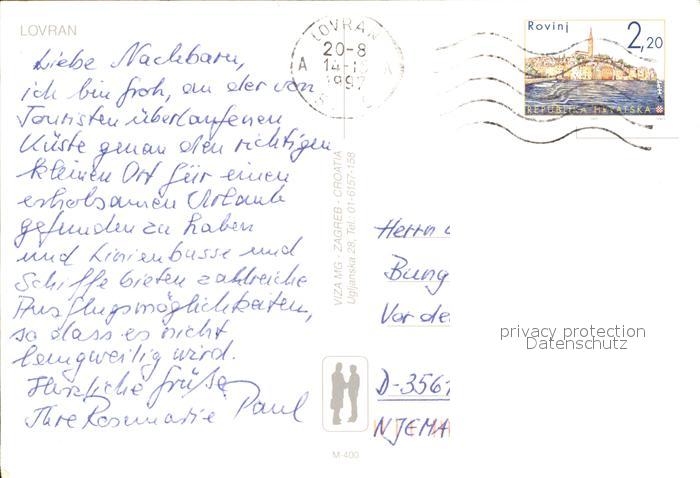 LOVRAN
Liebe Nachbarn,
ich bin froh, an der von
Touristen überlaufenen
Küste genau den richtigen
kleinen Ort für einen
erholsamen Urlaub
gefunden zu haben
und Linienbusse und
Schiffe bieten zahlreiche
Ausflugsmöglichkeiten,
so dass es nicht
langweilig wird.
Herzliche Grüße
Ihre Rosemarie Paul
VIZA MG - ZAGREB - CROATIA
Ugljanska 28, Tel. 01-6157-158
M-400
LOVRAN
20-8
A 14-
1997
Rovinj
2,20
REPUBLIKA HRVATSKA
Herrn
Bung
Vor de
D-3561
NJEMA
privacy protection
Datenschutz